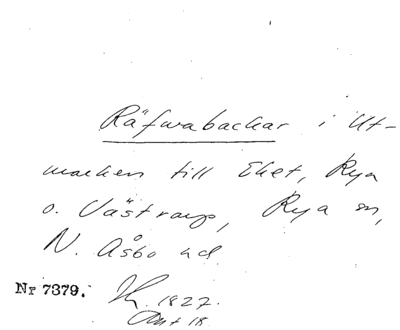 Räfwabackar i Ut-
marken till Eket, Rya
o. Västraup, Rya sn,
N. Åsbo hd
Nr 7379. 1827.
Akt 18